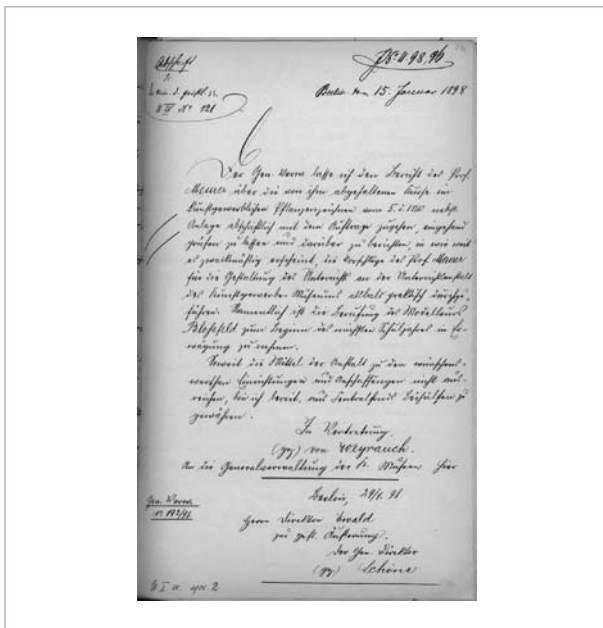 Abschrift
N° II 98, 96
U IV N° 121
Berlin den 15. Januar 1898
Der Gen. Verw. lasse ich den Bericht des Prof.
Meurer über die von ihm abgehaltenen Kurse im
kunstgewerblichen Pflanzenzeichnen vom 5. d. Mts. nebst
Anlage abschriftlich mit dem Auftrage zugehen, eingehend
prüfen zu lassen und darüber zu berichten, in wie weit
es zweckmäßig erscheint, die Vorschläge des Prof. Meurer
für die Gestaltung des Unterrichts an der Unterrichtsanstalt
des Kunstgewerbe-Museums alsbald praktisch durchzu-
führen. Namentlich ist die Berufung des Modelleurs
Blossfeldt zum Beginn des nächsten Schuljahres in Er-
wägung zu nehmen.
Soweit die Mittel der Anstalt zu den wünschens-
werthen Einrichtungen und Anschaffungen nicht aus-
reichen, bin ich bereit, aus Centralfonds Beihülfen zu
gewähren.
In Vertretung.
(gz) von Weyrauch.
An die Generalverwaltung der K. Museen hier
Berlin, 29/1. 98
Gen. Verw.
Herrn Direktor Ewald
zu gefl. Äußerung.
Der Gen. Direktor
(gz) Schöne